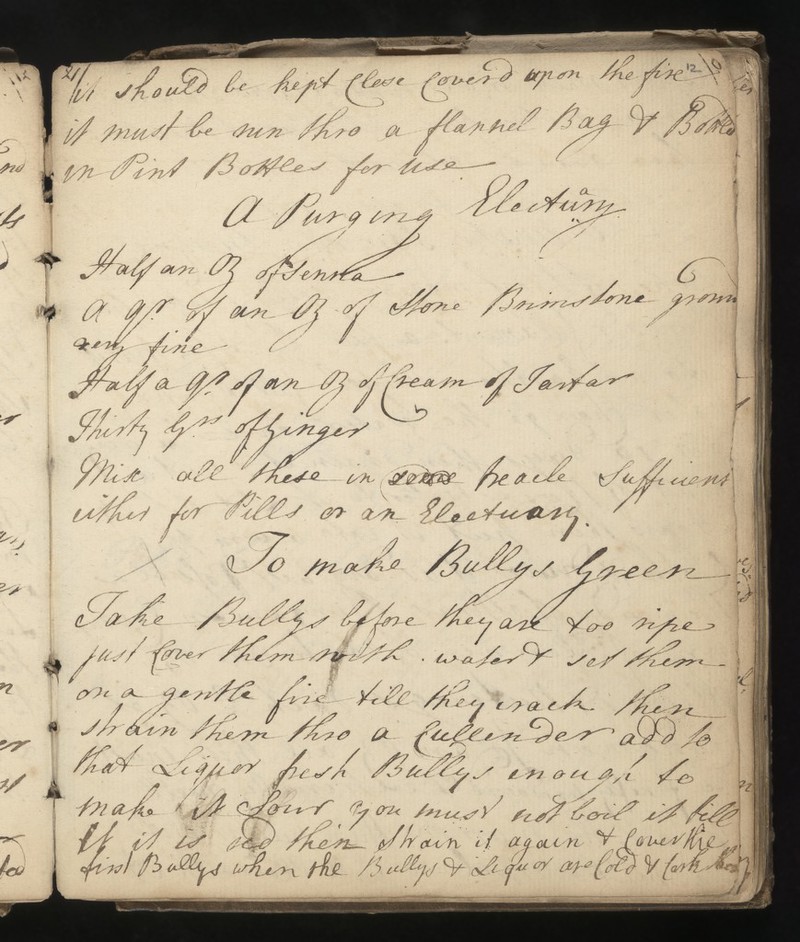 21
12
it should be kept Close Coverd upon the fire
it must be run thro a flannel Bag & Bottled
in Pint Bottles for use
A Purging Electuary
Half an Oz of Senna
A qr of an Oz of Stone Brimstone ground
very fine
Half a Qr of an Oz of Cream of Tartar
Thirty Grs of Ginger
Mix all these in some treacle Sufficient
either for Pills or an Electuary.
To make Bullys Green
Take Bullys before they are too ripe
just Cover them with water & set them
on a gentle fire till they crack then
strain them thro a Cullender add to
that Liquor fresh Bullys enough to
make it Sour you must not boil it till
it is red then Strain it again & Cover the
first Bullys when the Bullys & Liquor are Cold & Cork